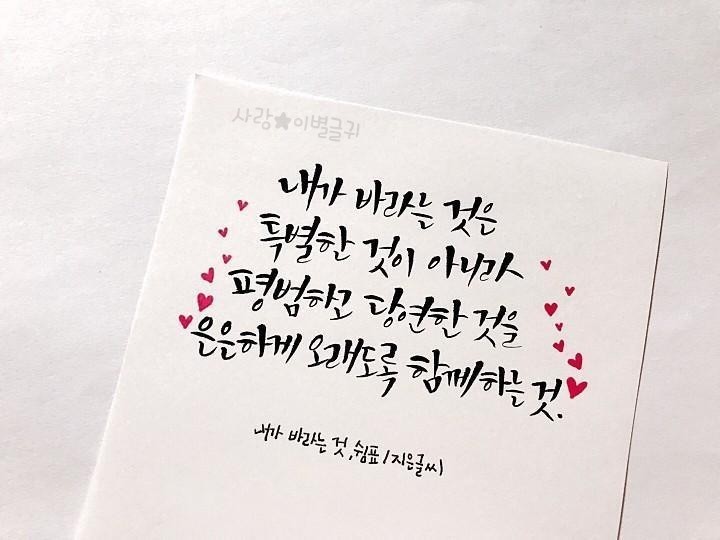 사랑★이별글귀
내가 바라는 것은
특별한 것이 아니라
평범하고 당연한 것을
은은하게 오래도록 함께하는 것.
내가 바라는 것, 쉼표 / 지은글씨